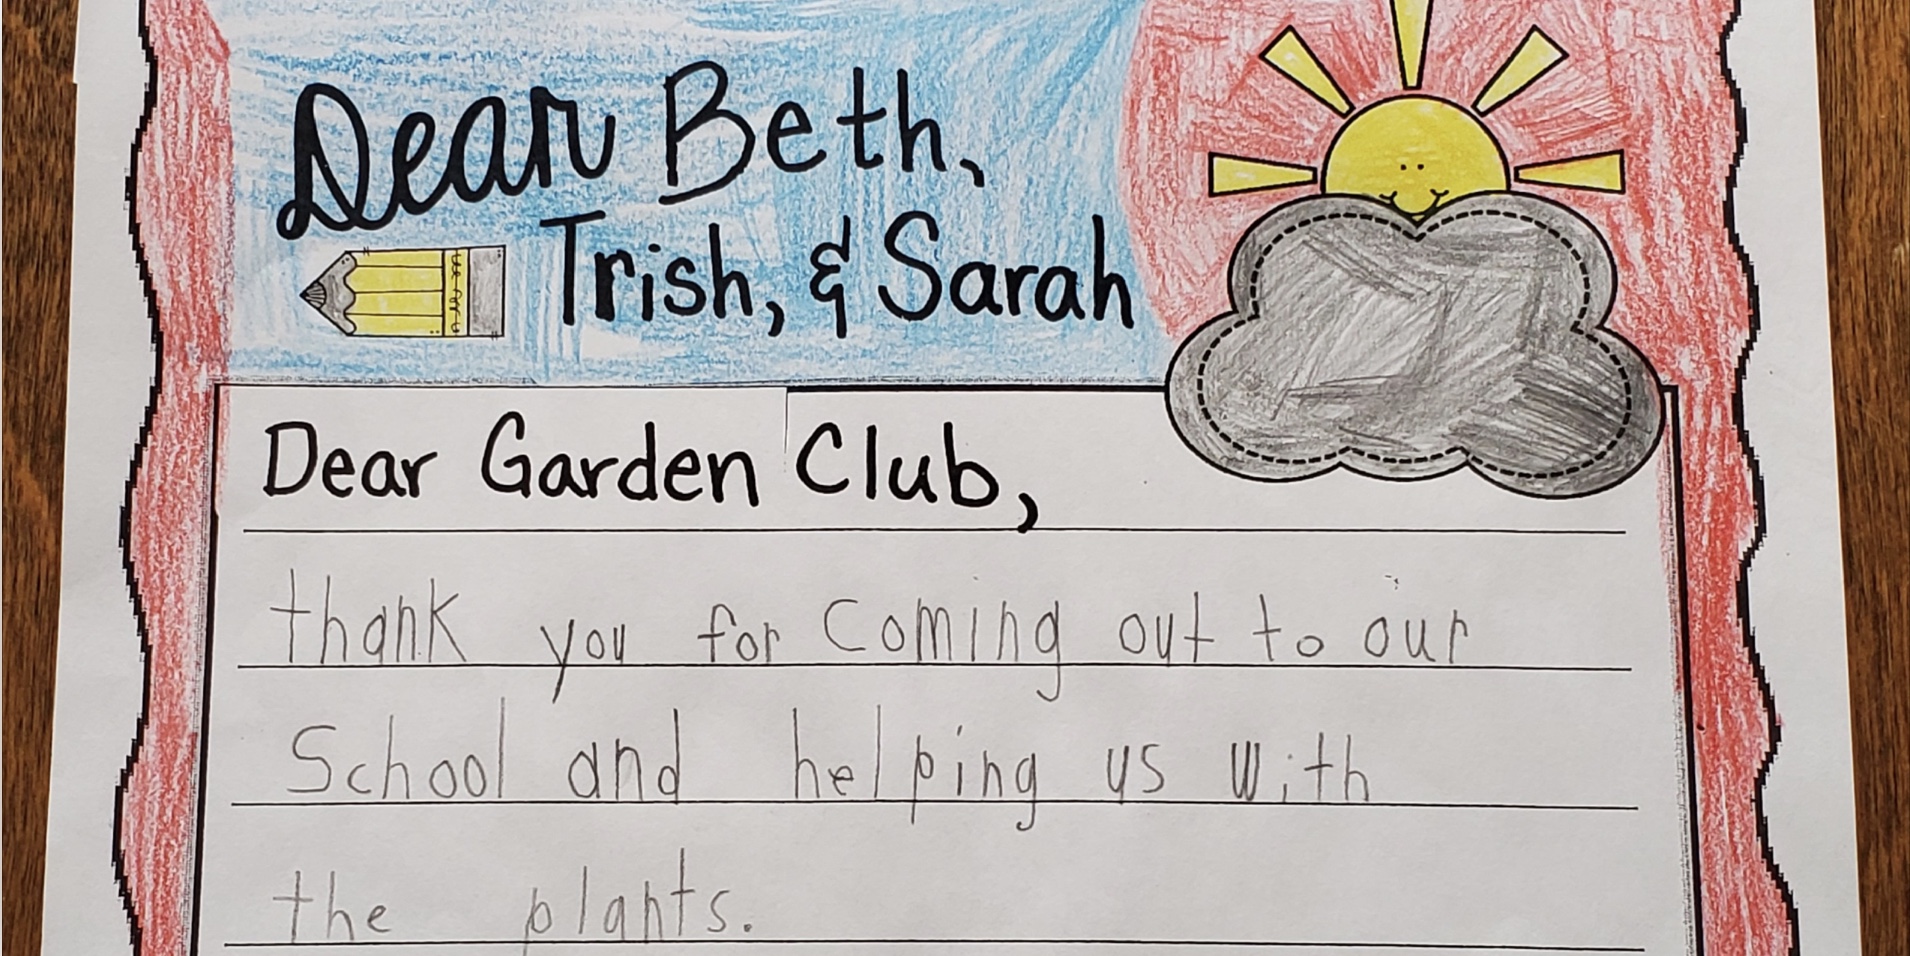 Dear Beth,
Trish, & Sarah
Dear Garden Club,
thank you for Coming out to our
School and helping us with
the plants.